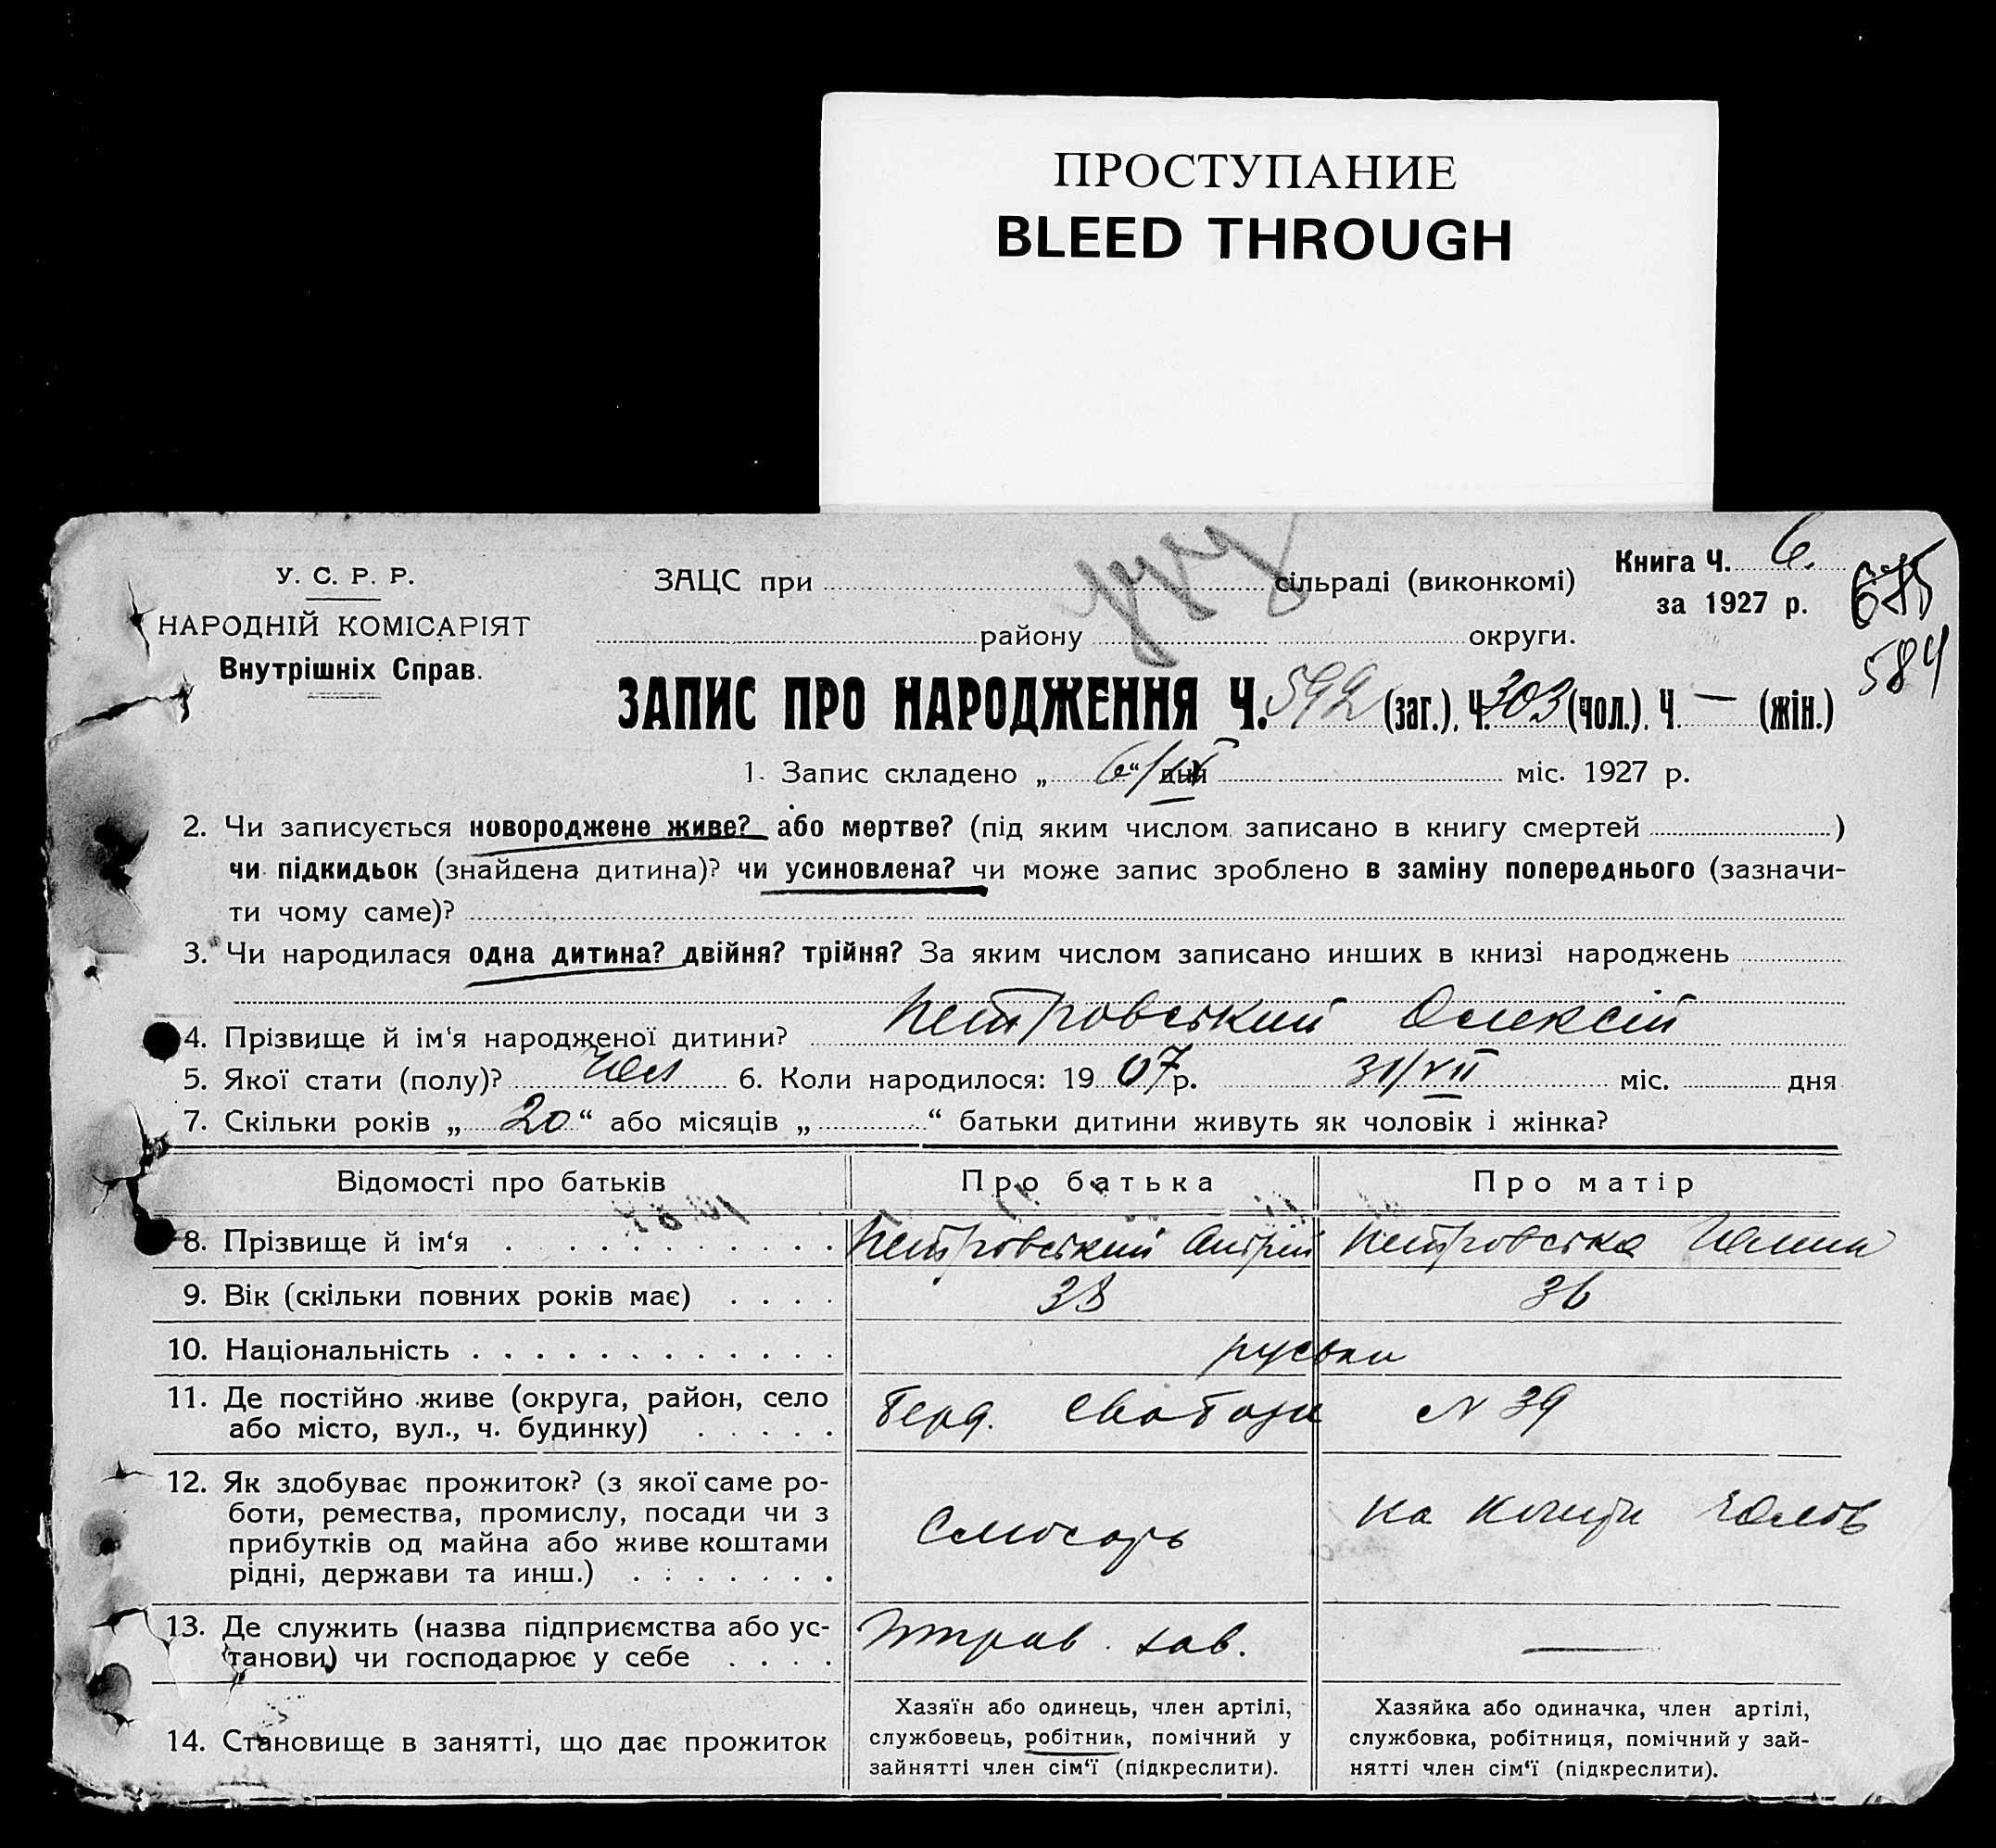 ПРОСТУПАНИЕ
BLEED THROUGH
У. С. Р. Р.
НАРОДНІЙ КОМІСАРІЯТ
Внутрішніх Справ.
ЗАЦС при сільраді (виконкомі)
району округи.
Книга Ч. 6.
за 1927 р.
584
ЗАПИС ПРО НАРОДЖЕННЯ Ч. 592 (заг.), Ч. 303 (чол.), Ч — (жін.)
1. Запис складено „ 6 “/IX дня міс. 1927 р.
2. Чи записується новороджене живе? або мертве? (під яким числом записано в книгу смертей )
чи підкидьок (знайдена дитина)? чи усиновлена? чи може запис зроблено в заміну попереднього (зазначи-
ти чому саме)?
3. Чи народилася одна дитина? двійня? трійня? За яким числом записано инших в книзі народжень
4. Прізвище й ім‘я народженої дитини? Петровський Олексій
5. Якої стати (полу)? чол 6. Коли народилося: 19 07 р. 31/VII міс. дня
7. Скільки років „ 20 “ або місяців „ “ батьки дитини живуть як чоловік і жінка?
Відомості про батьків Про батька Про матір
8. Прізвище й ім‘я Петровський Андрій Петровська
9. Вік (скільки повних років має) 38 36
10. Національність руськи
11. Де постійно живе (округа, район, село
або місто, вул., ч. будинку)
Берд. Свободи N 39
12. Як здобуває прожиток? (з якої саме ро-
боти, ремества, промислу, посади чи з
прибутків од майна або живе коштами
рідні, держави та инш.)
Слюсарь
на кошти чолов
13. Де служить (назва підприємства або ус-
танови) чи господарює у себе
зав. —
14. Становище в занятті, що дає прожиток
Хазяїн або одинець, член артілі,
службовець, робітник, помічний у
зайнятті член сім‘ї (підкреслити).
Хазяйка або одиначка, член артілі,
службовка, робітниця, помічний у зай-
нятті член сім‘ї (підкреслити).